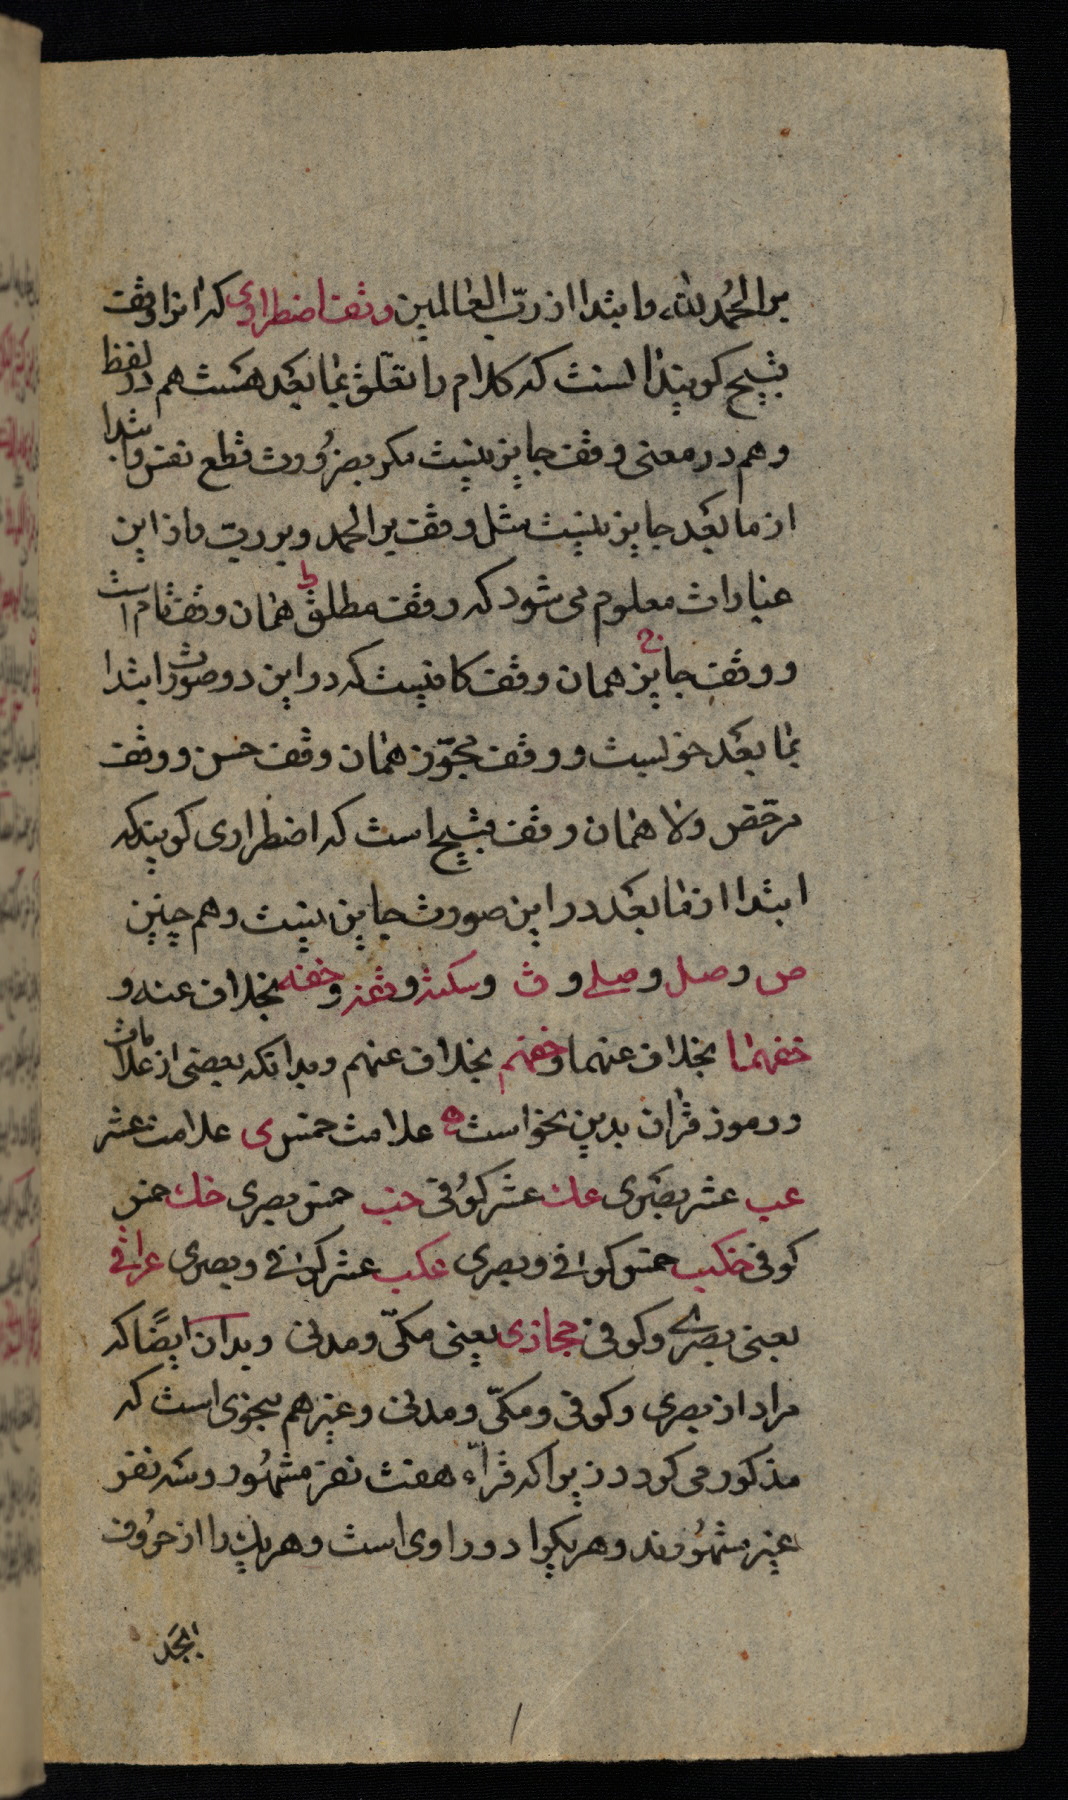 بر الحمد لله، و ابتدا از ربّ العالمین وقف اضطراری که انرا وقف
قبیح کویند انست که کلام را تعلّق بما بعد هست هم در لفظ
و هم در معنی وقف جایز نیست مکر بضرورت قطع نفس و ابتدا
از ما بعد جایز نیست مثل وقف بر الحمد و بر ربّ و از این
عبارات معلوم می شود که وقف مطلق ط همان وقف تام است
و وقف جایز ج همان وقف کافیست که در این دو صورت ابتدا
بما بعد خوبست و وقف مجوّز همان وقف حسن و وقف
مرخّص و لا همان وقف قبیح است که اضطراری کویند که
ابتدا از ما بعد در این صورت جایز نیست و هم چنین
ص و صل و صلے و ق و سکته و وقفه و خفنه بخلاف عنه و
خفهما بخلاف عنهما و خفهم بخلاف عنهم و بدانکه بعضی از علامات
و رموز قرآن بدین نحو است ه علامت خمس ی علامت عشر
عب عشر بصری عك عشر کوفی خب خمس بصری خك خمس
کوفی خکب خمس کوفی و بصری عکب عشر کوفی و بصری عراقی
یعنی بصری و کوفی حجازی یعنی مکّی و مدنی و بدان ایضًا که
مراد از بصری و کوفی و مکّی و مدنی و غیرهم بنحوی است که
مذکور می کردد زیرا که قرّاء هفت نفر مشهور و سه نفر
غیر مشهورند و هر یکرا دو راوی است و هر یك را از حروف
ابجد